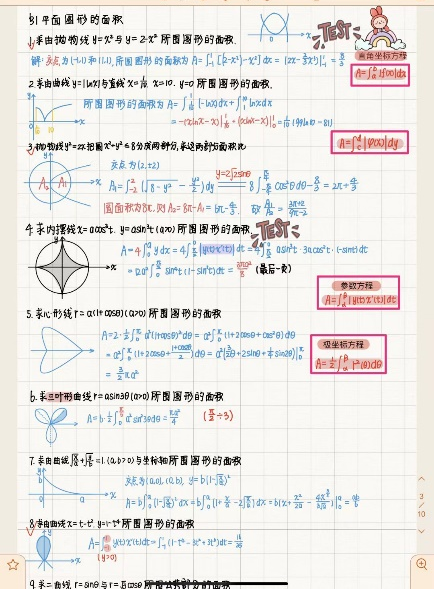 §1 平面图形的面积
TEST
1. 求由抛物线 y=x² 与 y=2-x² 所围图形的面积.
解: 交点为(-1,1)和(1,1), 所围图形的面积为 A=∫₋₁¹[(2-x²)-x²]dx = [2x-⅔x³]|₋₁¹ = 8/3
直角坐标方程
A=∫ₐᵇ|f(x)|dx
2. 求由曲线 y=|lnx| 与直线 x=1/10, x=10. y=0 所围图形的面积.
所围图形的面积为 A=∫(-lnx)dx+∫₁¹⁰lnxdx
= -(xlnx-x)|+(xlnx-x)|₁¹⁰=1/10(99ln10-81)
A=∫|φ(y)|dy
3. 抛物线 y²=2x 把圆 x²+y²=8 分成两部分, 求这两部分面积比
交点为(2,±2)
A₁=∫₋₂²(√(8-y²)-y²/2)dy = 8∫cos²θdθ-8/3=2π+4/3
y=2√2sinθ
圆面积为8π, 则A₂=8π-A₁=6π-4/3. 故A₁/A₂=(3π+2)/(9π-2)
4. 求内摆线 x=acos³t. y=asin³t (a>0) 所围图形的面积
TEST
A=4∫₀ᵃydx=4∫|y(t)x'(t)|dt=4∫asin³t·3acos²t·(-sint)dt
=12a²∫sin⁴t(1-sin²t)dt=3πa²/8
参数方程
A=∫|y(t)x'(t)|dt
5. 求心形线 r=a(1+cosθ)(a>0) 所围图形的面积
A=2·½∫₀^π a²(1+cosθ)²dθ=a²∫₀^π(1+2cosθ+cos²θ)dθ
=a²∫₀^π(1+2cosθ+(1+cos2θ)/2)dθ=a²(3/2θ+2sinθ+¼sin2θ)|₀^π
=3/2πa²
极坐标方程
A=½∫r²(θ)dθ
6. 求三叶形曲线 r=asin3θ(a>0) 所围图形的面积
A=6·½∫a²sin²3θdθ=πa²/4 (π/2÷3)
7. 求由曲线√(x/a)+√(y/b)=1. (a,b>0) 与坐标轴所围图形的面积
交点为(a,0),(0,b), y=b(1-√(x/a))²
A=b∫₀ᵃ(1-√(x/a))²dx=b∫₀ᵃ(1+x/a-2√(x/a))dx=b(x+x²/2a-4x^(3/2)/3√a)|₀ᵃ=ab/6
8. 求由曲线 x=t-t³. y=1-t⁴ 所围图形的面积
A=∫y(t)x'(t)dt=∫₋₁¹(1-t⁴-3t²+3t⁶)dt=16/35
(y>0)
3
10
9. 求二曲线 r=sinθ 与 r=√3cosθ 所围